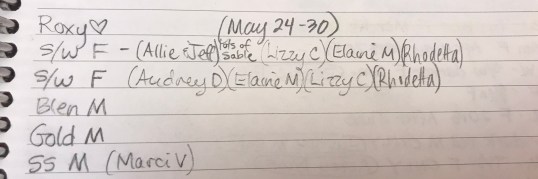 Roxy♡ (May 24-30)
S/W F - (Allie & Jeff) lots of sable (Lizzy C) (Elaine M) (Rhodetta)
S/W F (Audrey D) (Elaine M) (Lizzy C) (Rhodetta)
Blen M
Gold M
SS M (Marci V)